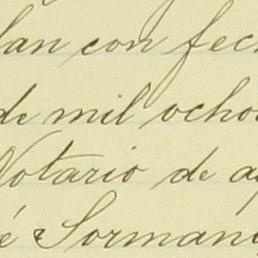 lan con fech
de mil ochos
Notario de a
é Sorman